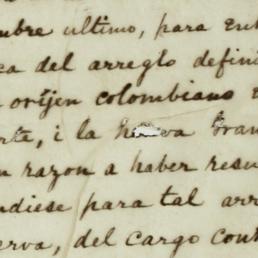 mbre ultimo, para ent
ca del arreglo defini
orijen colombiano
rte, i la Nueva Gran
n razon a haber resu
ndiese para tal arr
erva, del cargo cont